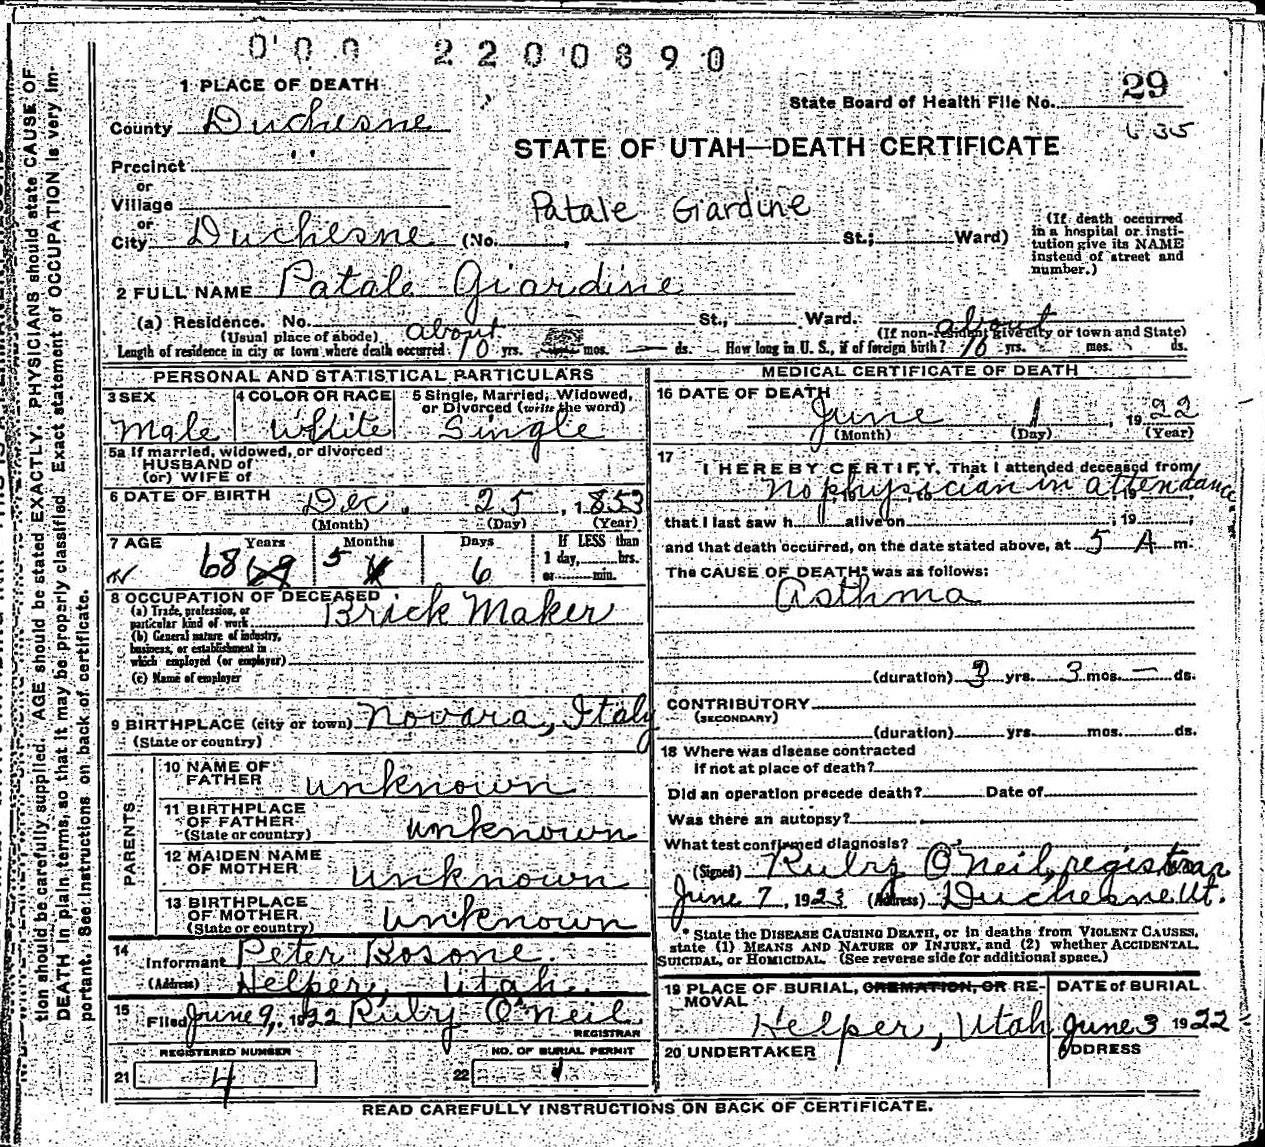 0 0 0 2 2 0 0 8 9 0
1 PLACE OF DEATH
State Board of Health File No. 29
635
County Duchesne
STATE OF UTAH—DEATH CERTIFICATE
Precinct "
or
Village
Patale Giardine
or
City Duchesne (No. , St.; Ward)
(If death occurred in a hospital or institution give its NAME instead of street and number.)
2 FULL NAME Patale Giardine
(a) Residence. No. St., Ward.
(Usual place of abode) about
(If non-resident, give city or town and State) about
Length of residence in city or town where death occurred 10 yrs. mos. — ds. How long in U. S., if of foreign birth? 10 yrs. mos. ds.
PERSONAL AND STATISTICAL PARTICULARS
3 SEX
Male
4 COLOR OR RACE
White
5 Single, Married, Widowed, or Divorced (write the word)
Single
5a If married, widowed, or divorced
HUSBAND of
(or) WIFE of
6 DATE OF BIRTH Dec. 25, 1853
(Month) (Day) (Year)
7 AGE
Years 68 69
Months 5
Days 6
If LESS than
1 day, hrs.
or min.
8 OCCUPATION OF DECEASED
(a) Trade, profession, or particular kind of work Brick Maker
(b) General nature of industry, business, or establishment in which employed (or employer)
(c) Name of employer
9 BIRTHPLACE (city or town) Novara, Italy
(State or country)
PARENTS
10 NAME OF FATHER unknown
11 BIRTHPLACE OF FATHER unknown
(State or country)
12 MAIDEN NAME OF MOTHER unknown
13 BIRTHPLACE OF MOTHER unknown
(State or country)
14
Informant Peter Bosone.
(Address) Helper, Utah.
15
Filed June 9, 1922 Ruby O'Neil
REGISTRAR
REGISTERED NUMBER
21 4
NO. OF BURIAL PERMIT
22 1
MEDICAL CERTIFICATE OF DEATH
16 DATE OF DEATH
June 1, 1922
(Month) (Day) (Year)
17
I HEREBY CERTIFY, That I attended deceased from
No physician in attendance
that I last saw h alive on , 19 ,
and that death occurred, on the date stated above, at 5 A m.
The CAUSE OF DEATH* was as follows:
Asthma
(duration) 3 yrs. 3 mos. — ds.
CONTRIBUTORY
(SECONDARY)
(duration) yrs. mos. ds.
18 Where was disease contracted
if not at place of death?
Did an operation precede death? Date of
Was there an autopsy?
What test confirmed diagnosis?
(Signed) Ruby O'Neil, registrar
June 7, 1923 (Address) Duchesne Ut.
* State the DISEASE CAUSING DEATH, or in deaths from VIOLENT CAUSES,
state (1) MEANS AND NATURE OF INJURY, and (2) whether ACCIDENTAL,
SUICIDAL, or HOMICIDAL. (See reverse side for additional space.)
19 PLACE OF BURIAL, CREMATION, OR REMOVAL
Helper, Utah
DATE of BURIAL
June 3 1922
20 UNDERTAKER
ADDRESS
READ CAREFULLY INSTRUCTIONS ON BACK OF CERTIFICATE.
tion should be carefully supplied. AGE should be stated EXACTLY. PHYSICIANS should state CAUSE OF
DEATH in plain terms, so that it may be properly classified. Exact statement of OCCUPATION is very im-
portant. See instructions on back of certificate.